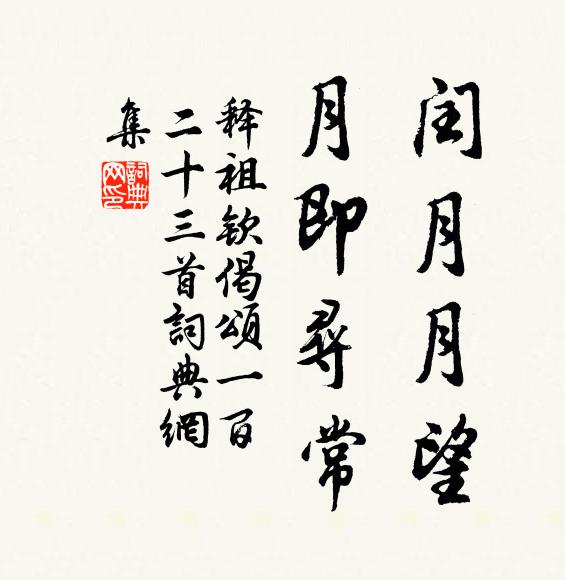 闰月月望
月即尋常
释祖钦偈頌一百
二十三首詞典網
集
詞典
网印